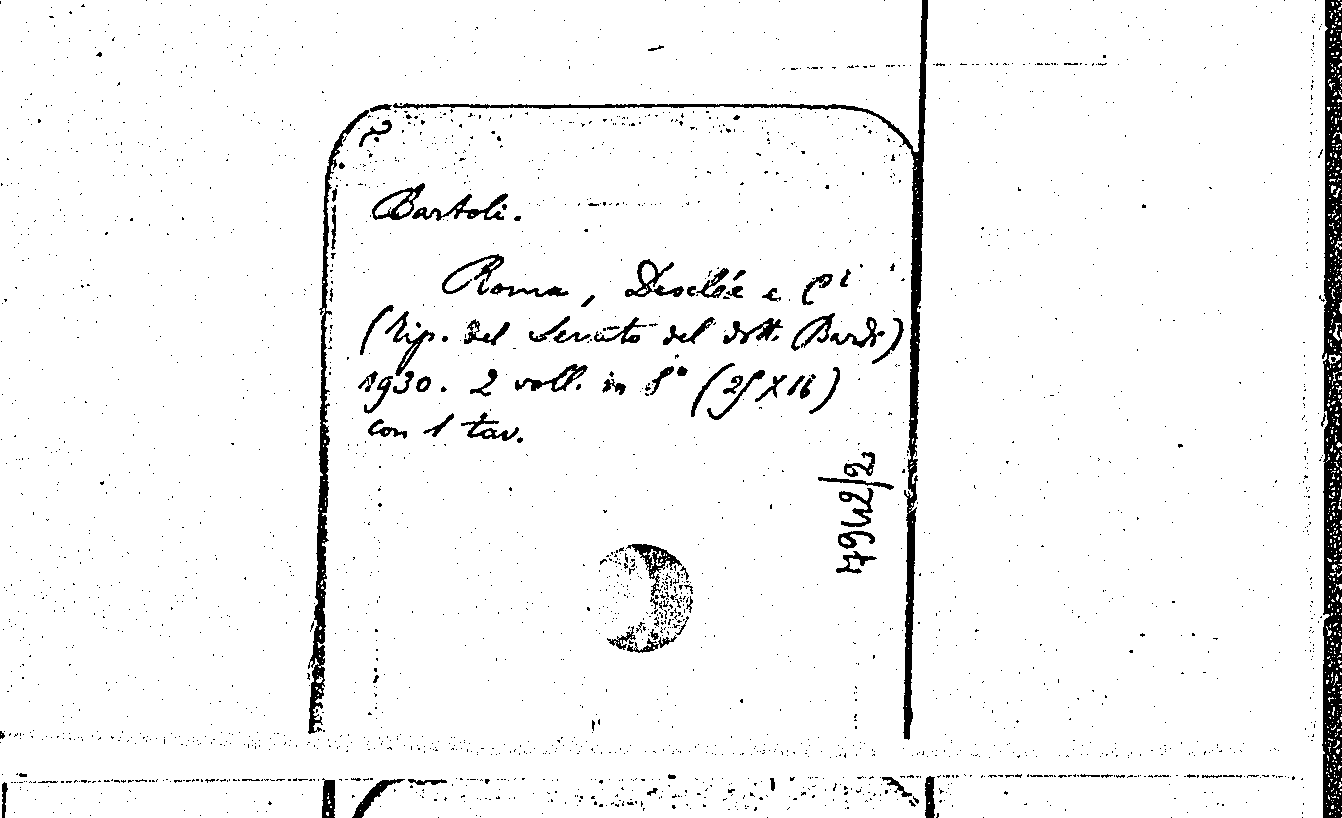 2
Bartoli.
Roma, Desclée e Ci
(tip. del Senato del dott. Bardi)
1930. 2 voll. in 8° (25 X 16)
con 1 tav.
7942/2